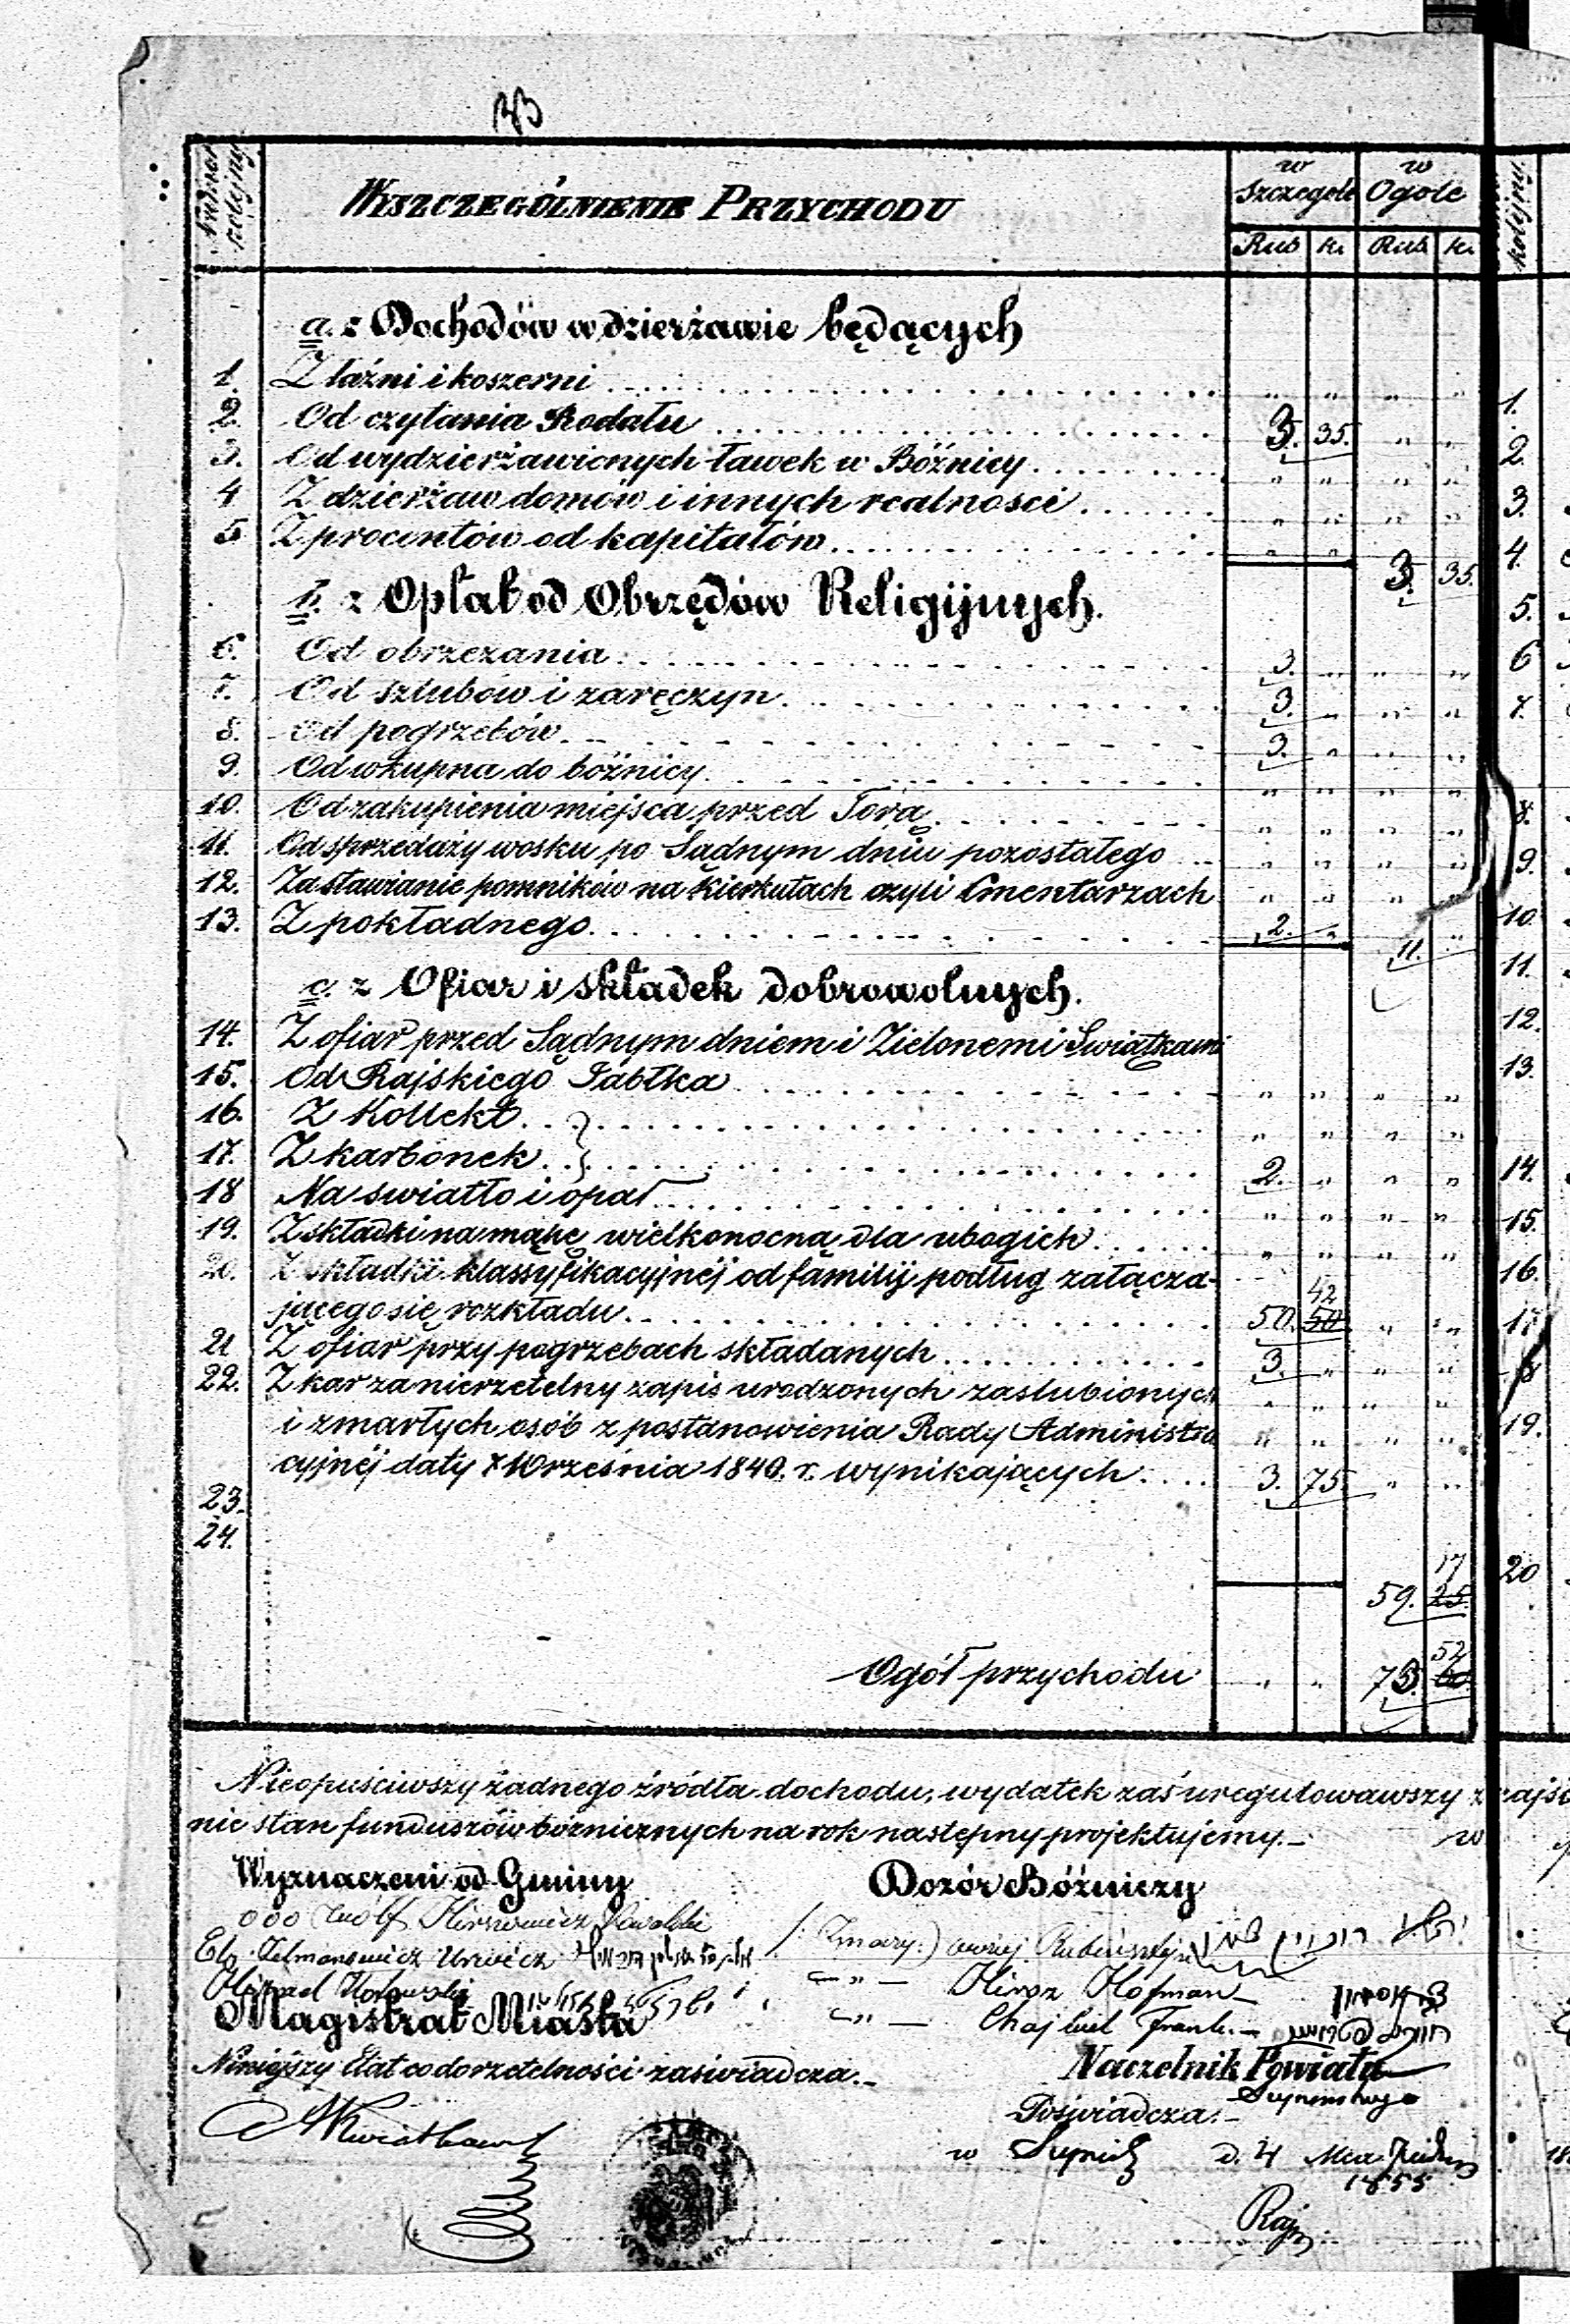 Numer kolejny
WYSZCZEGÓLNIENIE PRZYCHODU
w Szczegole
w Ogole
Rub k. Rub k.
a. z Dochodów w dzierżawie będących
1. Z łaźni i koszerni " " " "
2. Od czytania Rodału 3. 35. " "
3. Od wydzierżawionych ławek w Bóźnicy " " " "
4 Z dzierżaw domów i innych realności " " " "
5 Z procentów od kapitałów " "
3. 35.
b. z Opłat od Obrzędów Religijnych.
6. Od obrzezania 3. " " "
7. Od szlubów i zaręczyn 3. " " "
8. od pogrzebów 3. " " "
9. Od wkupna do bóźnicy " " " "
10. Od zakupienia miejsca przed Torą " " " "
11. Od sprzedaży wosku po Sądnym dniu pozostałego " " " "
12. Za stawianie pomników na Kierkutach czyli Cmentarzach " " " "
13. Z pokładnego 2. "
11. "
c. z Ofiar i składek dobrowolnych.
14. Z ofiar przed Sądnym dniem i Zielonemi Swiątkami
15. Od Rajskiego Jabłka " " " "
16. Z Kollekt " " " "
17. Z karbonek 2. " " "
18 Na swiatło i opał " " " "
19. Z składki na mąkę wielkonocną dla ubogich " " " "
20. Z składki klassyfikacyjnéj od familij podług załącza-
42
jącego się rozkładu 50. 50 " "
21 Z ofiar przy pogrzebach składanych 3. " " "
22. Z kar za nierzetelny zapis urodzonych zaslubionych " " " "
i zmarłych osób z postanowienia Rady Administra " " " "
cyjnéj daty 7 Września 1840. r. wynikających 3. 75. " "
23.
24.
17
59. 25.
52
Ogół przychodu " " 73. 60
Nieopuściwszy żadnego źródła dochodu, wydatek zaś uregulowawszy
nie stan funduszów bóżnicznych na rok następny projektujemy.
Wyznaczeni od Gminy
Dozór Bóźniczy
000 Wolf Hirszowicz
Zelmanowicz
Hirsz Hofman
Frank
Magistrat Miasta
Niniejszy Etat co do rzetelności zaświadcza.
Naczelnik Powiatu
Poświadcza.
w d. 4
1855
1.
2.
3.
4.
5.
6
7.
8.
9.
10.
11.
12.
13.
14.
15.
16.
17
19.
20